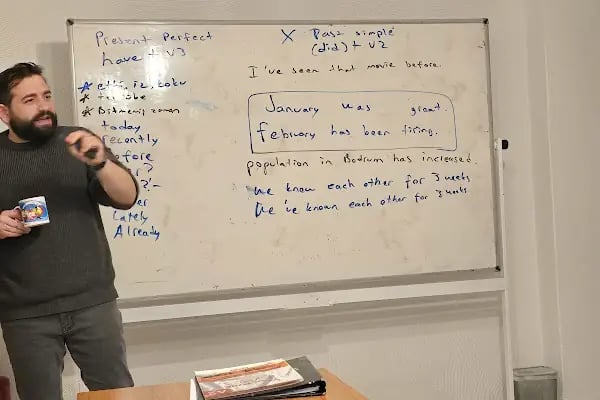 Present Perfect
have + V3
X Past simple
(did) + V2
I've seen that movie before.
* etki, iz, koku
* tecrübe
* Bitmemiş zaman
today
recently
before
Lately
Already
January was great.
February has been tiring.
population in Bodrum has increased.
we know each other for 3 weeks
We've known each other for 3 weeks.